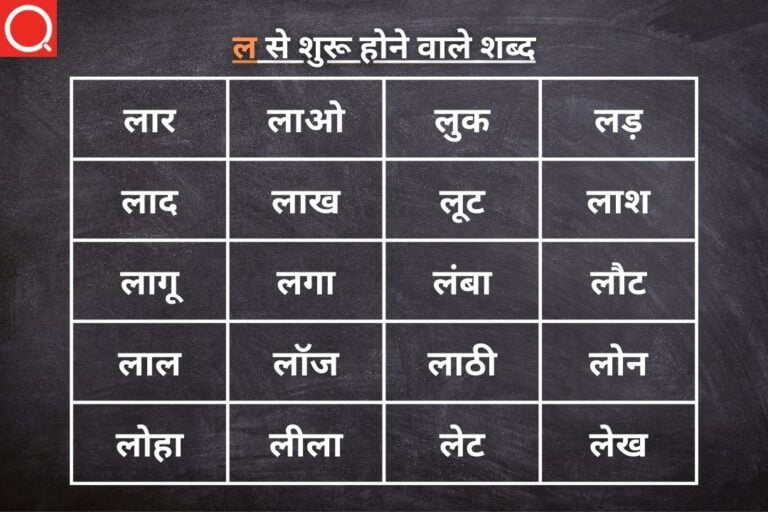 ल से शुरू होने वाले शब्द
लार लाओ लुक लड़
लाद लाख लूट लाश
लागू लगा लंबा लौट
लाल लॉज लाठी लोन
लोहा लीला लेट लेख